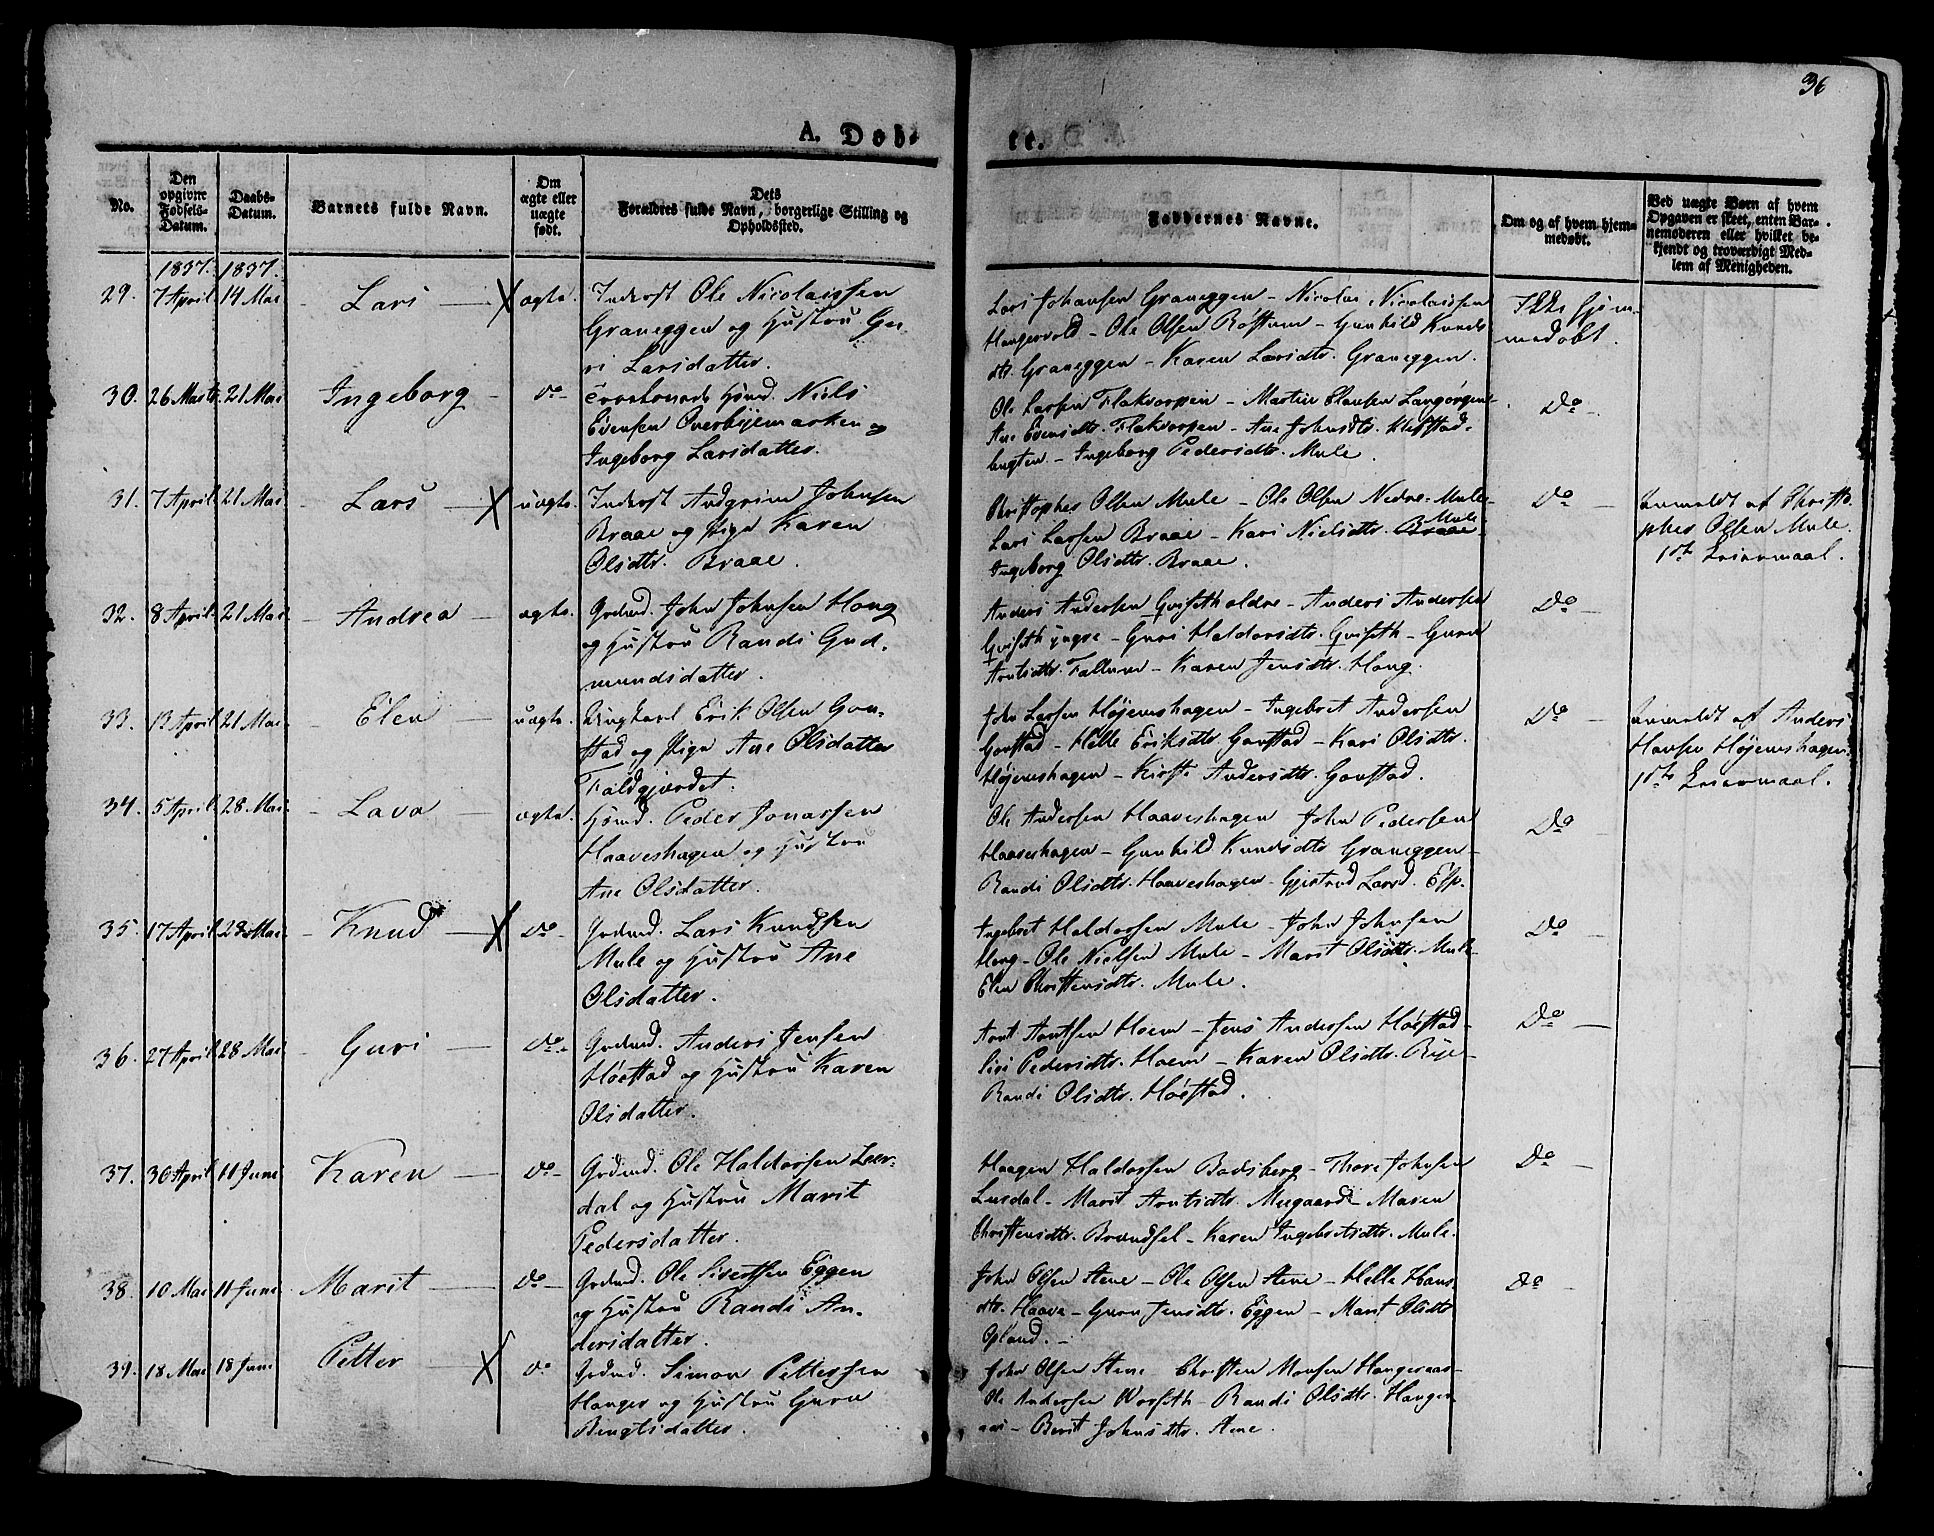 36
A. Døb-
te.
No.
Den opgivne Fødsels-Datum.
Daabs-Datum.
Barnets fulde Navn.
Om ægte eller uægte født.
Dets Forældres fulde Navn, borgerlige Stilling og Opholdssted.
Faddernes Navne.
Om og af hvem hjemmedøbt.
Ved uægte Børn af hvem Opgaven er skeet, enten Barnemøderen eller hvilket bekjendt og troværdigt Medlem af Menigheden.
1837. 1837.
29. 7 April 14 Mai Lars X ægte. Inderst Ole Nicolaissen
Graneggen og Hustru Gu-
ri Larsdatter.
Lars Johansen Graneggen - Nicolai Nicolaissen
- Ole Olsen Røstum - Gunhild Knuds
dtr. Graneggen - Karen Larsdtr. Graneggen.
Ikke hjem-
medøbt.
30. 26 Marts 21 Mai Ingeborg do Hsmd. Niels
Evensen Overbyemarken og
Ingeborg Larsdatter.
Ole Larsen - Martin Langørgen
Ane Evensdtr. - Ane Johnsdtr.
- Ingeborg Pedersdtr. Mule.
Do
31. 7 April 21 Mai Lars X uægte. Inderst Andgrim Johnsen
Braae og Pige Karen
Olsdtr. Braae.
Christopher Olsen Mule - Ole Olsen Nedre-Mule
Lars Larsen Braae - Kari Nielsdtr. Braae Mule
Ingeborg Olsdtr. Braae.
Do
Anmeldt af Christo-
pher Olsen Mule.
1ste Leiermaal.
32. 8 April 21 Mai Andrea ægte. Grdmd. John Johnsen Houg
og Hustru Randi Gud-
mundsdatter.
Anders Andersen ældre - Anders Andersen
yngre - Guri Haldorsdtr. - Guru
Arntsdtr. - Karen Jensdtr. Houg.
Do
33. 13 April 21 Mai Elen uægte. Ungkarl Erik Olsen Gon-
stad og Pige Ane Olsdatter
Faldgjerdet.
John Larsen Højemshagen - Ingebret Andersen
Gonstad - Helle Eriksdtr. Gonstad - Kari Olsdtr.
Højemshagen - Kirsti Andersdtr. Gonstad.
Do
Anmeldt af Anders
Hansen Højemshagen.
1ste Leiermaal.
34. 5 April 28 Mai Lava ægte. Hsmd. Peder Jonassen
Haaveshagen og Hustru
Ane Olsdatter.
Ole Andersen Haaveshagen John Pedersen
Haaveshagen - Gunhild Knudsdtr Graneggen
Randi Olsdtr. Haaveshagen - Gjertrud Larsd. Esp.
Do
35. 17 April 28 Mai Knud X do Grdmd. Lars Knudsen
Mule og Hustru Ane
Olsdatter.
Ingebret Haldorsen Mule - John Johnsen
Houg - Ole Nielsen Mule - Marit Olsdtr. Mule
Elen Christensdtr. Mule.
Do
36. 27 April 28 Mai Guri do Grdmd. Anders Jensen
Høstad og Hustru Karen
Olsdatter.
Arnt Arntsen Hoem - Jens Andersen Høstad
Siri Pedersdtr. Hoem - Karen Olsdtr. Rye
Randi Olsdtr. Høstad.
Do
37. 30 April 11 Juni Karen do Grdmd. Ole Haldorsen Leer-
dal og Hustru Marit
Pedersdatter.
Haagen Haldorsen - Thore Johnsen
Leerdal - Marit Arntsdtr. - Maren
Christensdtr. Brandsel - Karen Ingebretsdtr. Mule.
Do
38. 10 Mai 11 Juni Marit do Grdmd. Ole Sivertsen Eggen
og Hustru Randi An-
dersdatter.
John Olsen Stene - Ole Olsen Stene - Helle Hans
dtr. Haave - Guru Jensdtr. Eggen - Marit Olsdtr
Opland.
Do
39. 18 Mai 18 Juni Petter X do Grdmd. Simon Pettersen
Hanger og Hustru Guru
Bengtsdatter.
John Olsen Stene - Christen Monsen Hangeraas
Ole Andersen - Randi Olsdtr. Hanger
aas - Berit Johnsdtr. Stene.